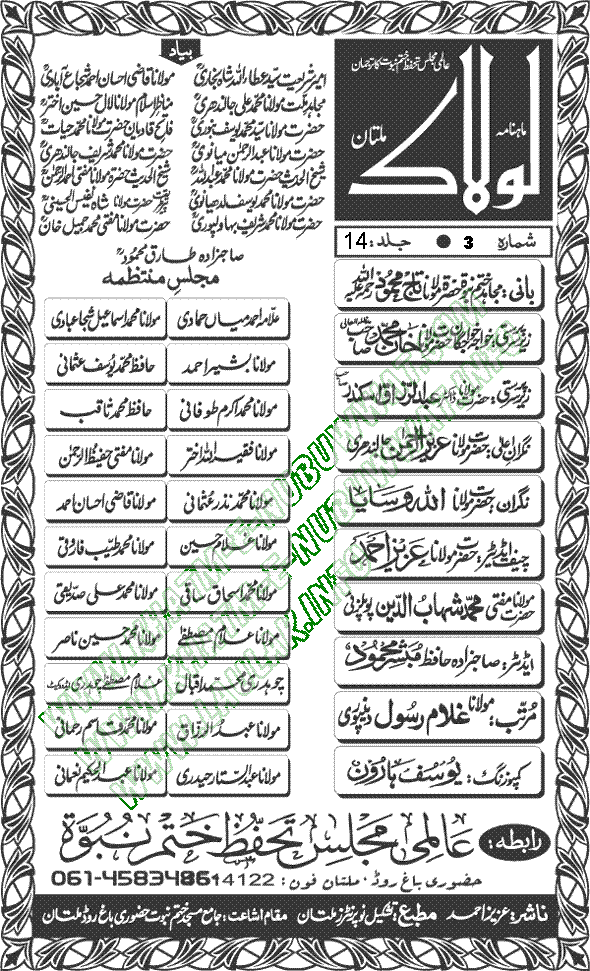 عالمی مجلس تحفظ ختم نبوت کا ترجمان
ماہنامہ
لولاک
ملتان
شمارہ 3 ● جلد: 14
بانی: مجاہد ختم نبوۃ حضرۃ مولانا تاج محمود رحمۃ اللہ علیہ
زیر سرپرستی: خواجہ خواجگان حضرت مولانا خان محمد صاحب
زیر سرپرستی: حضرت مولانا ڈاکٹر عبدالرزاق اسکندر صاحب
نگران اعلیٰ: حضرت مولانا عزیز الرحمٰن جالندھری
نگران: حضرت مولانا اللہ وسایا
چیف ایڈیٹر: حضرت مولانا عزیز احمد
حضرت مولانا مفتی محمد شہاب الدین پوپلزئی
ایڈیٹر: صاحبزادہ حافظ مبشر محمود
مرتب: مولانا غلام رسول دینپوری
کمپوزنگ: یوسف ہارون
بیاد
امیر شریعت سید عطاء اللہ شاہ بخاریؒ مولانا قاضی احسان احمد شجاع آبادیؒ
مجاہد ملت مولانا محمد علی جالندھریؒ مناظر اسلام مولانا لال حسین اخترؒ
حضرت مولانا سید محمد یوسف بنوریؒ فاتح قادیان حضرت مولانا محمد حیاتؒ
حضرت مولانا عبدالرحمٰن میانویؒ حضرت مولانا محمد شریف جالندھریؒ
شیخ الحدیث حضرت مولانا محمد عبداللہؒ شیخ الحدیث حضرۃ مولانا مفتی احمد الرحمٰنؒ
حضرت مولانا محمد یوسف لدھیانویؒ حضرت مولانا شاہ نفیس الحسینیؒ
حضرت مولانا محمد شریف بہاولپوریؒ حضرت مولانا مفتی محمد جمیل خانؒ
صاحبزادہ طارق محمودؒ
مجلس منتظمہ
علامہ احمد میاں حمادی مولانا محمد اسماعیل شجاعبادی
مولانا بشیر احمد حافظ محمد یوسف عثمانی
مولانا محمد اکرم طوفانی حافظ محمد ثاقب
مولانا فقیر اللہ اختر مولانا مفتی حفیظ الرحمٰن
مولانا محمد نذر عثمانی مولانا قاضی احسان احمد
مولانا غلام حسین مولانا محمد طیب فاروقی
مولانا محمد اسحاق ساقی مولانا محمد علی صدیقی
مولانا غلام مصطفےٰ مولانا محمد حسین ناصر
چوہدری محمد اقبال غلام مصطفےٰ چوہدری ایڈووکیٹ
مولانا عبدالرزاق مولانا محمد قاسم رحمانی
مولانا عبدالستار حیدری مولانا عبدالحکیم نعمانی
رابطہ: عالمی مجلس تحفظ ختم نبوۃ
حضوری باغ روڈ، ملتان فون:
ناشر: عزیز احمد مطبع: تشکیل نو پرنٹرز ملتان مقام اشاعت: جامع مسجد ختم نبوت حضوری باغ روڈ ملتان